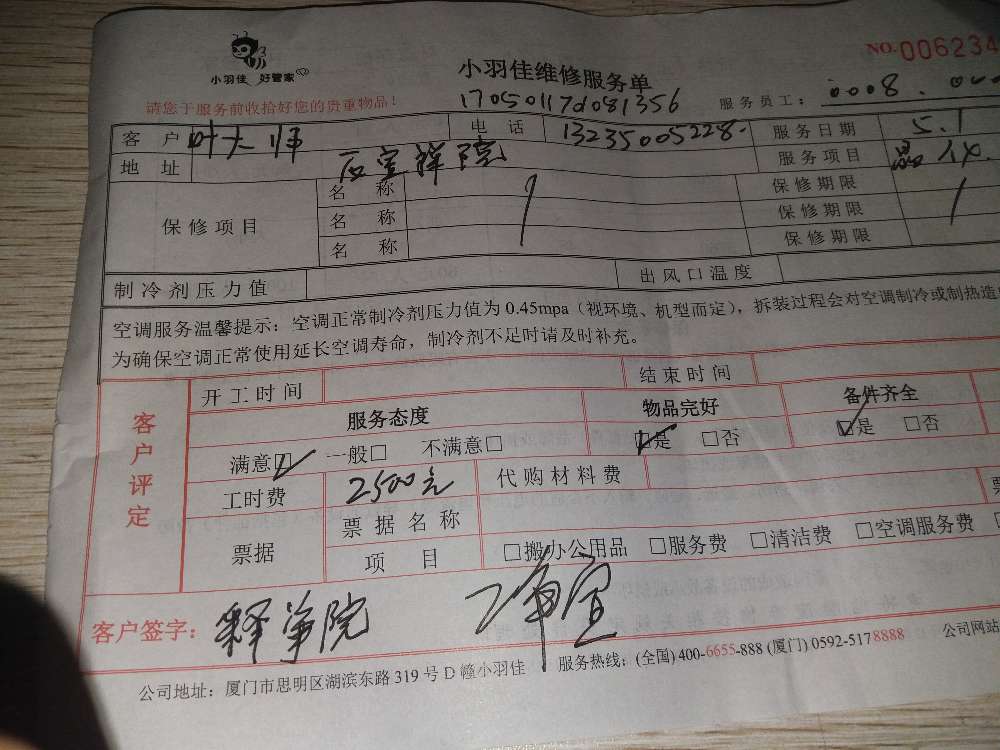 小羽佳 好管家
小羽佳维修服务单
NO.006234
请您于服务前收拾好您的贵重物品!
17050117d081356
服务员工: 0008.
客户 叶大师 电话 13235005228. 服务日期 5.1
地址 服务项目
保修项目 名称 保修期限
名称 保修期限
名称 保修期限
制冷剂压力值 出风口温度
空调服务温馨提示:空调正常制冷剂压力值为 0.45mpa(视环境、机型而定),拆装过程会对空调制冷或制热造
为确保空调正常使用延长空调寿命,制冷剂不足时请及时补充。
客户评定
开工时间 结束时间
服务态度 物品完好 备件齐全
满意☑ 一般□ 不满意□ ☑是 □否 ☑是 □否
工时费 2500元 代购材料费
票据 票据名称 票
项目 □搬办公用品 □服务费 □清洁费 □空调服务费
客户签字:
公司地址:厦门市思明区湖滨东路 319 号 D 幢小羽佳 服务热线:(全国) 400-6655-888 (厦门) 0592-5178888 公司网站